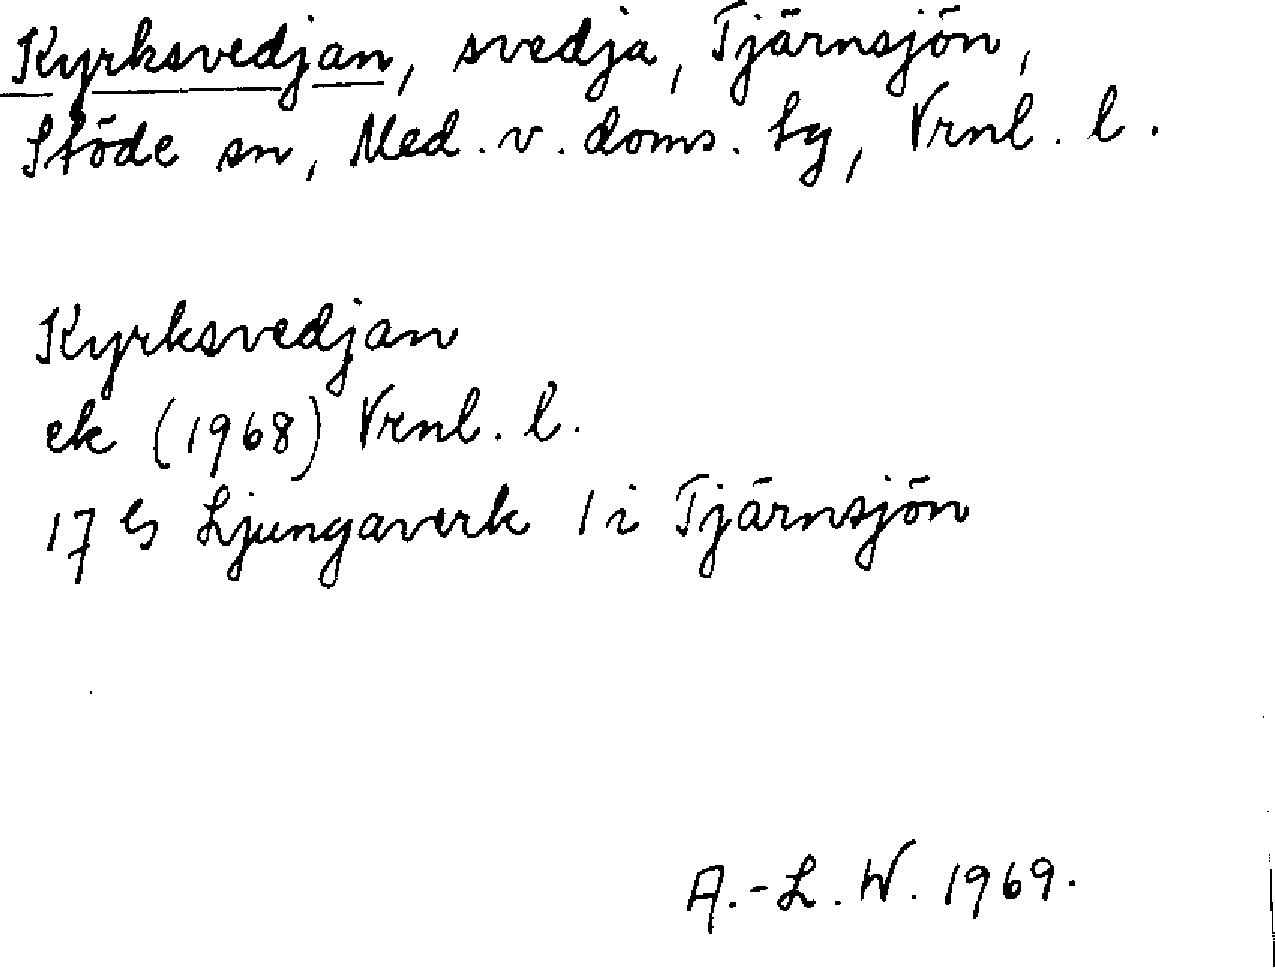 Kyrksvedjan, svedja, Tjärnsjön,
Stöde sn, Med. v. doms. tg, Vrnl. l.
Kyrksvedjan
ek (1968) Vrnl. l.
17 G Ljungaverk 1 i Tjärnsjön
A.-L. W. 1969.